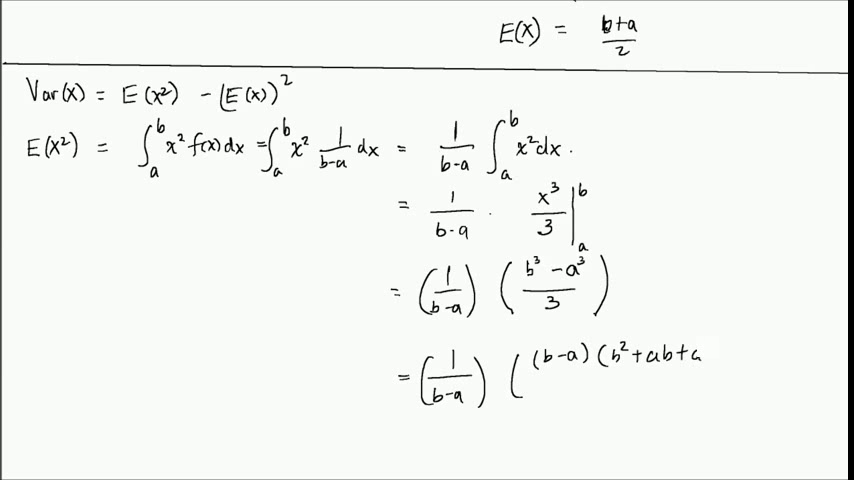 E(X) = b+a/2
Var(X) = E(X²) - (E(X))²
E(X²) = ∫ₐᵇ x² f(x) dx = ∫ₐᵇ x² 1/(b-a) dx = 1/(b-a) ∫ₐᵇ x² dx.
= 1/(b-a) · x³/3 |ₐᵇ
= (1/(b-a)) ((b³ - a³)/3)
= (1/(b-a)) ( (b-a) (b² + ab + a